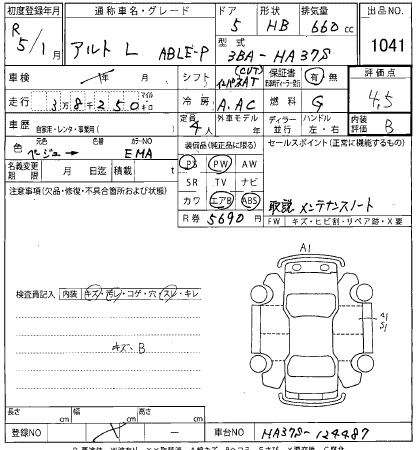 初度登録年月 通称車名・グレード ドア 形状 排気量 出品NO.
R 5/1 アルト L ABLE-P 5 HB 660 cc 1041
型式 3BA-HA37S
車検 年 月 シフト (CVT) インパネAT 保証書 有 無 評価点
走行 3万8千250 マイル キロ 冷房 A.AC 燃料 G 4.5
車歴 自家用・レンタ・事業用( ) 定員 4人 外車モデル 年 ディーラー 並行 ハンドル 左・右 内装評価 B
色 ベージュ→ 色替 カラーNO EMA 装備品(純正品に限る) セールスポイント(正常に機能するもの)
名義変更期限 月 日迄 積載 t PS PW AW
注意事項(欠品・修復・不具合箇所および状態) SR TV ナビ
カワ エアB ABS 取説 メンテナンスノート
R券 5690円 FW キズ・ヒビ割・リペア跡・X要
A1
検査員記入 内装 キズ・汚レ・コゲ・穴・スレ・キレ
A1
S1
キズ・B
長さ cm 幅 cm 高さ cm
登録NO ― 車台NO HA37S-124487